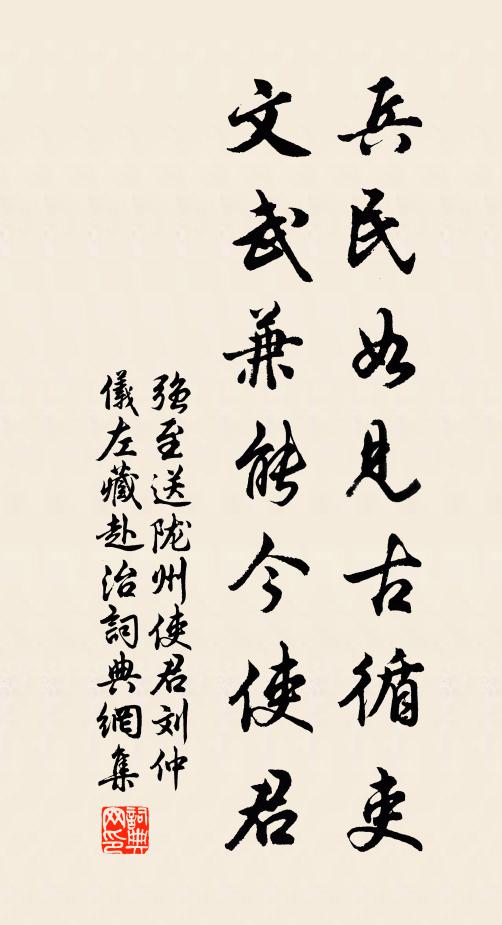 兵民如见古循吏
文武兼能今使君
强至送陇州使君刘仲
儀左藏赴治詞典網集
詞典
网印